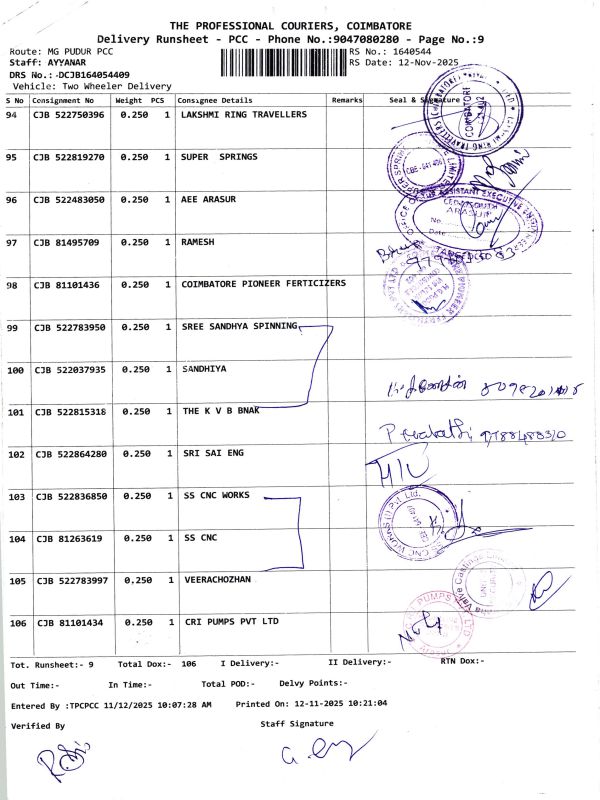 THE PROFESSIONAL COURIERS, COIMBATORE
Delivery Runsheet - PCC - Phone No.:9047080280 - Page No.:9
Route: MG PUDUR PCC RS No.: 1640544
Staff: AYYANAR RS Date: 12-Nov-2025
DRS No.:-DCJB164054409
Vehicle: Two Wheeler Delivery
S No Consignment No Weight PCS Consignee Details Remarks Seal & Signature
94 CJB 522750396 0.250 1 LAKSHMI RING TRAVELLERS
95 CJB 522819270 0.250 1 SUPER SPRINGS
96 CJB 522483050 0.250 1 AEE ARASUR
97 CJB 81495709 0.250 1 RAMESH
98 CJB 81101436 0.250 1 COIMBATORE PIONEER FERTICIZERS
99 CJB 522783950 0.250 1 SREE SANDHYA SPINNING
100 CJB 522037935 0.250 1 SANDHIYA
101 CJB 522815318 0.250 1 THE K V B BNAK
102 CJB 522864280 0.250 1 SRI SAI ENG
103 CJB 522836850 0.250 1 SS CNC WORKS
104 CJB 81263619 0.250 1 SS CNC
105 CJB 522783997 0.250 1 VEERACHOZHAN
106 CJB 81101434 0.250 1 CRI PUMPS PVT LTD
Tot. Runsheet:- 9 Total Dox:- 106 I Delivery:- II Delivery:- RTN Dox:-
Out Time:- In Time:- Total POD:- Delvy Points:-
Entered By :TPCPCC 11/12/2025 10:07:28 AM Printed On: 12-11-2025 10:21:04
Verified By Staff Signature